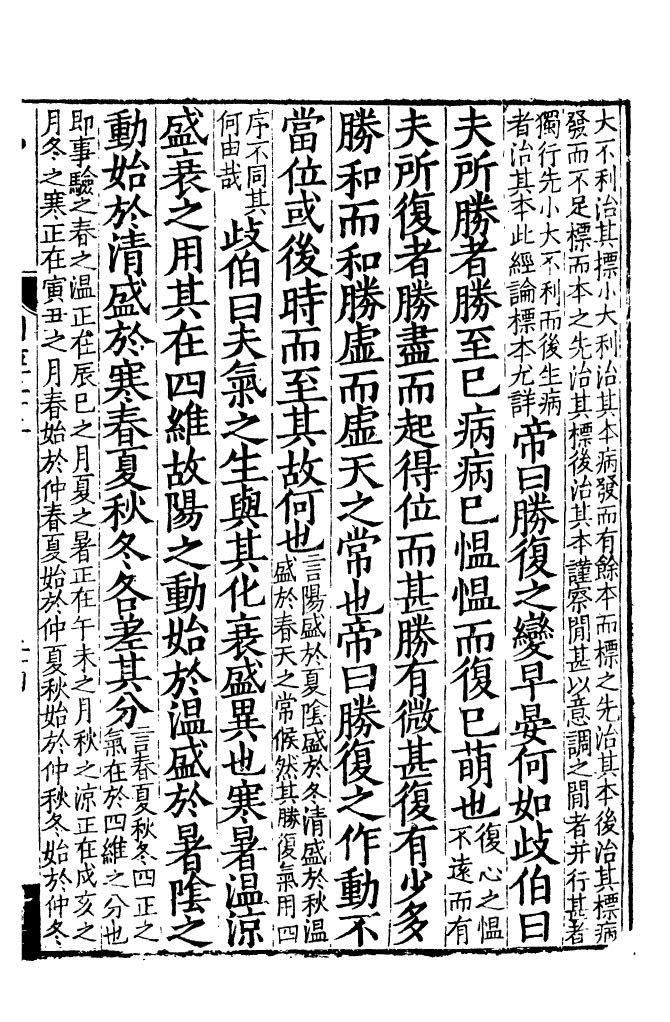 大不利治其摽小大利治其本病發而有餘本而標之先治其本後治其標病
發而不足標而本之先治其標後治其本謹察閒甚以意調之閒者并行甚者
獨行先小大不利而後生病
者治其本此經論標本尤詳
帝曰勝復之變早晏何如歧伯曰
夫所勝者勝至巳病病巳愠愠而復巳萌也
復心之愠
不遠而有
夫所復者勝盡而起得位而甚勝有微甚復有少多
勝和而和勝虛而虛天之常也帝曰勝復之作動不
當位或後時而至其故何也
言陽盛於夏陰盛於冬清盛於秋温
盛於春天之常候然其勝復氣用四
序不同其
何由哉
歧伯曰夫氣之生與其化衰盛異也寒暑温涼
盛衰之用其在四維故陽之動始於温盛於暑陰之
動始於清盛於寒春夏秋冬各差其分
言春夏秋冬四正之
氣在於四維之分也
即事驗之春之温正在辰巳之月夏之暑正在午未之月秋之涼正在戌亥之
月冬之寒正在寅丑之月春始於仲春夏始於仲夏秋始於仲秋冬始於仲冬